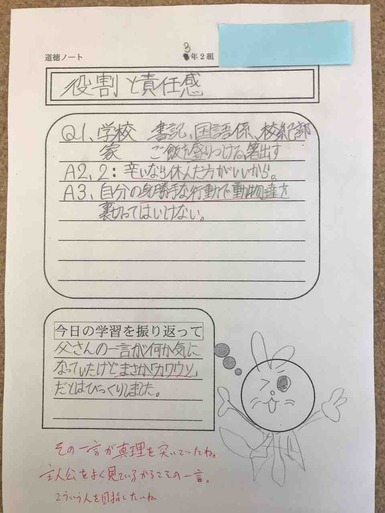 道徳ノート
3年2組
役割と責任感
Q1、学校 書記、国語係、校紀部
家 ご飯を盛りつける、箸出す
A2、2:辛いなら休んだ方がいいから。
A3、自分の身勝手な行動で動物達を
裏切ってはいけない。
今日の学習を振り返って
父さんの一言が何か気に
なっていたけどまさか「カワウソ」
だとはびっくりしました。
その一言が真理を突いていたね。
主人公をよく見ているからこその一言。
こういう人を目指したいね